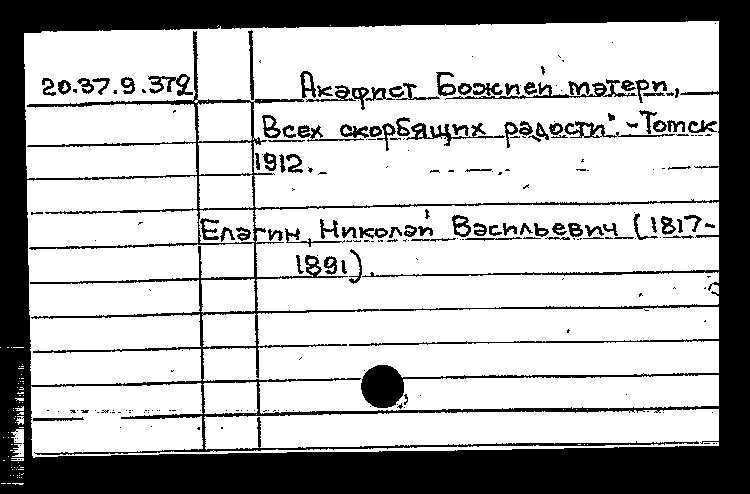 20.37.9.372 Акафист Божией матери,
„Всех скорбящих радости". - Томск
1912.
Елагин, Николай Васильевич (1817-
1891).